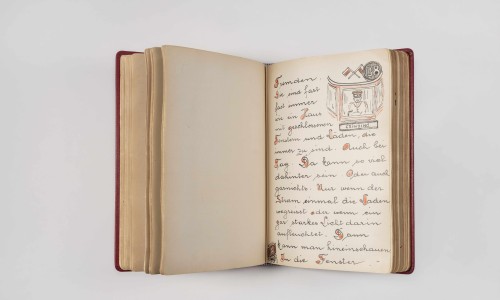 Fremden.
sind fast
fast immer
wie ein Haus
mit geschlossenen
Fenstern und Laden, die
immer zu sind. Auch bei
Tag. Da kann so viel
dahinter sein. Oder auch
garnichts. Nur wenn der
Sturm einmal die Laden
wegreisst oder wenn ein
gar starkes Licht darin
aufleuchtet. Dann
kann man hineinschauen
In die Fenster